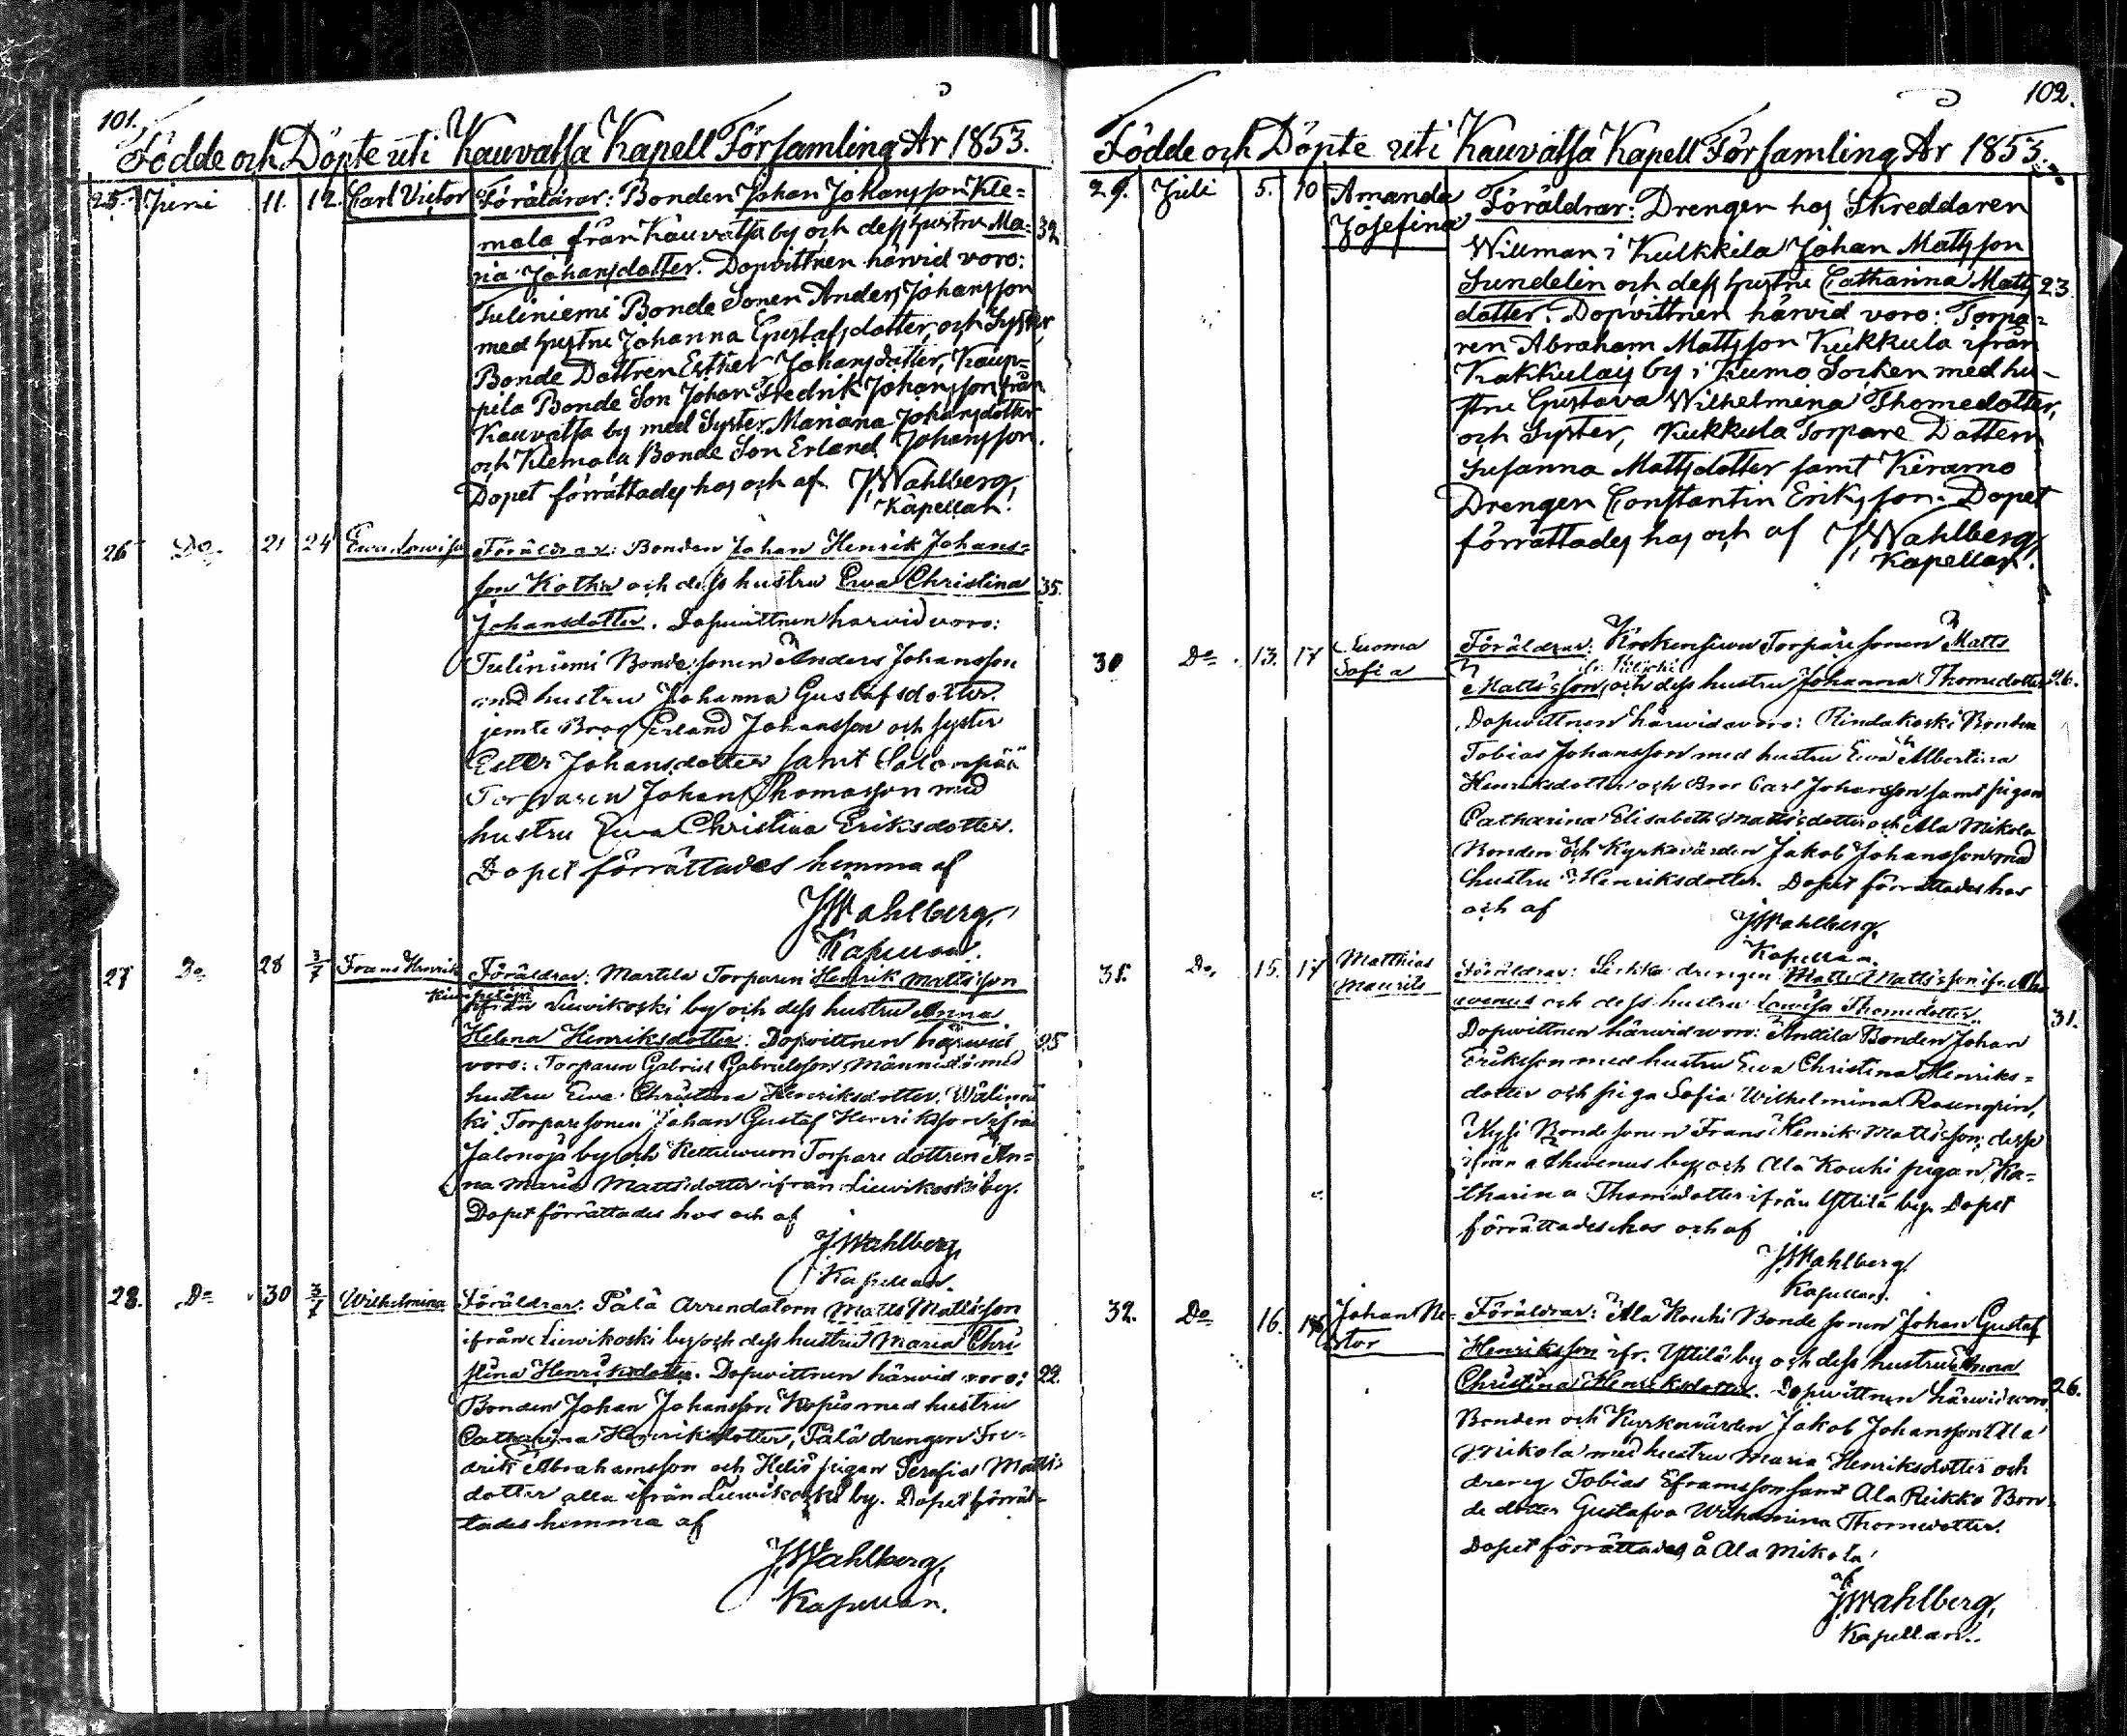 101.
Födde och Döpte uti Kauvatsa Kapell Församling År 1853.
25. Juni 11. 12. Carl Victor Föräldrar: Bonden Johan Johansson Kle=
mola från Kauvatsa by och dess hustru Ma= 32
ria Johansdotter. Dopvittnen härvid voro:
Tuliniemi Bonde Sonen Anders Johansson
med hustru Johanna Gustafsdotter, och Syster,
Bonde Dottren Esther Johansdotter, Kaup=
pila Bonde Son Johan Fredrik Johansson från
Kauvatsa by med Syster Mariana Johansdotter
och Klemola Bonde Son Erland Johansson.
Dopet förrättades hos och af J Wahlberg,
Kapellan.
26 Do 21 24 Ewa Lowisa Föräldrar: Bonden Johan Henrik Johans=
son Kotka och dess hustru Ewa Christina 35.
Johansdotter. Dopwittnen härvid voro:
Tuliniemi Bondesonen Anders Johansson
med hustru Johanna Gustafsdotter.
jemte Bror Erland Johansson och syster
Ester Johansdotter samt Salonpää
Torparen Johan Thomasson med
hustru Ewa Christina Eriksdotter.
Dopet förrättades hemma af
J Wahlberg,
Kapellan.
27 Do 28 3/7 Frans Henrik Föräldrar: Martela Torparen Henrik Mattsson
ifrån Liewikoski by och dess hustru Anna
Helena Henriksdotter. Dopvittnen härwid 25
voro: Torparen Gabriel Gabrielsson Männistö med
hustru Ewa Christina Henriksdotter,
ki Torparesonen Johan Gustaf Henriksson ifrån
Jalonoja by och Torpare dottren An=
na Maria Mattsdotter ifrån Liewikoski by.
Dopet förrättades hos och af
J Wahlberg,
Kapellan.
28. Do 30 3/7 Wilhelmina Föräldrar: Pälä Arrendatorn Matts Mattsson
ifrån Liewikoski by och dess hustru Maria Chri
stina Henriksdotter. Dopwittnen härwid voro: 22.
Bonden Johan Johansson med hustru
Catharina Henriksdotter, Pälä drengen Fre=
drik Abrahamsson och pigan Serafia Matts
dotter alla ifrån Liewikoski by. Dopet förrät=
tades hemma af
J Wahlberg,
Kapellan.
102.
Födde och Döpte uti Kauvatsa Kapell Församling År 1853.
29. Juli 5. 10 Amanda Josefina Föräldrar: Drengen hos Skreddaren
Willman i Kulkkila Johan Mattsson
Sundelin och dess hustru Catharina Matts 23.
dotter. Dopvittnen härvid voro: Torpa=
ren Abraham Mattsson Kukkula ifrån
Kakkulais by i Kumo Socken med hu=
stru Gustava Wilhelmina Thomedotter,
och Syster, Kukkula Torpare Dottern
Susanna Mattsdotter samt Keramo
Drengen Constantin Eriksson. Dopet
förrättades hos och af J Wahlberg,
Kapellan.
30 Do 13. 17 Suoma Sofia Föräldrar: Torparesonen Matts
Mattsson, och dess hustru Johanna Thomedotter 26.
Dopwittnen härwid woro: Rindakoski Bonden
Tobias Johansson med hustru Ewa Albertina
Henriksdotter och Bror Carl Johansson samt pigan
Catharina Elisabeth Mattsdotter och Ala Mikola
Bonden och Kyrkovärden Jakob Johansson med
hustru Henriksdotter. Dopet förrättades hos
och af J Wahlberg,
Kapellan.
31. Do. 15. 17 Matthias Maurits Föräldrar: drengen Matts Mattsson ifr. Ah
wenus och dess hustru Lowisa Thomedotter. 31.
Dopwittnen härwid woro: Anttila Bonden Johan
Eriksson med hustru Ewa Christina Henriks=
dotter och piga Sofia Wilhelmina Rosengren,
Nysi Bondesonen Frans Henrik Mattsson, desse
ifrån Ahwenus by, och Ala Kouhi pigan Ka=
tharina Thomedotter ifrån Yttilä by. Dopet
förrättades hos och af
J Wahlberg
Kapellan.
32. Do 16. Johan Ne=stor Föräldrar: Ala Kouhi Bonde sonen Johan Gustaf
Henriksson ifr. Yttilä by och dess hustru Anna
Christina Henriksdotter. Dopwittnen härwid woro 26.
Bonden och Kyrkovärden Jakob Johansson Ala
Mikola med hustru Maria Henriksdotter och
dreng Tobias Eframsson samt Ala Reikko Bon=
de dotter Gustafva Wilhelmina Thomedotter.
Dopet förrättades å Ala Mikola
af
J Wahlberg,
Kapellan.